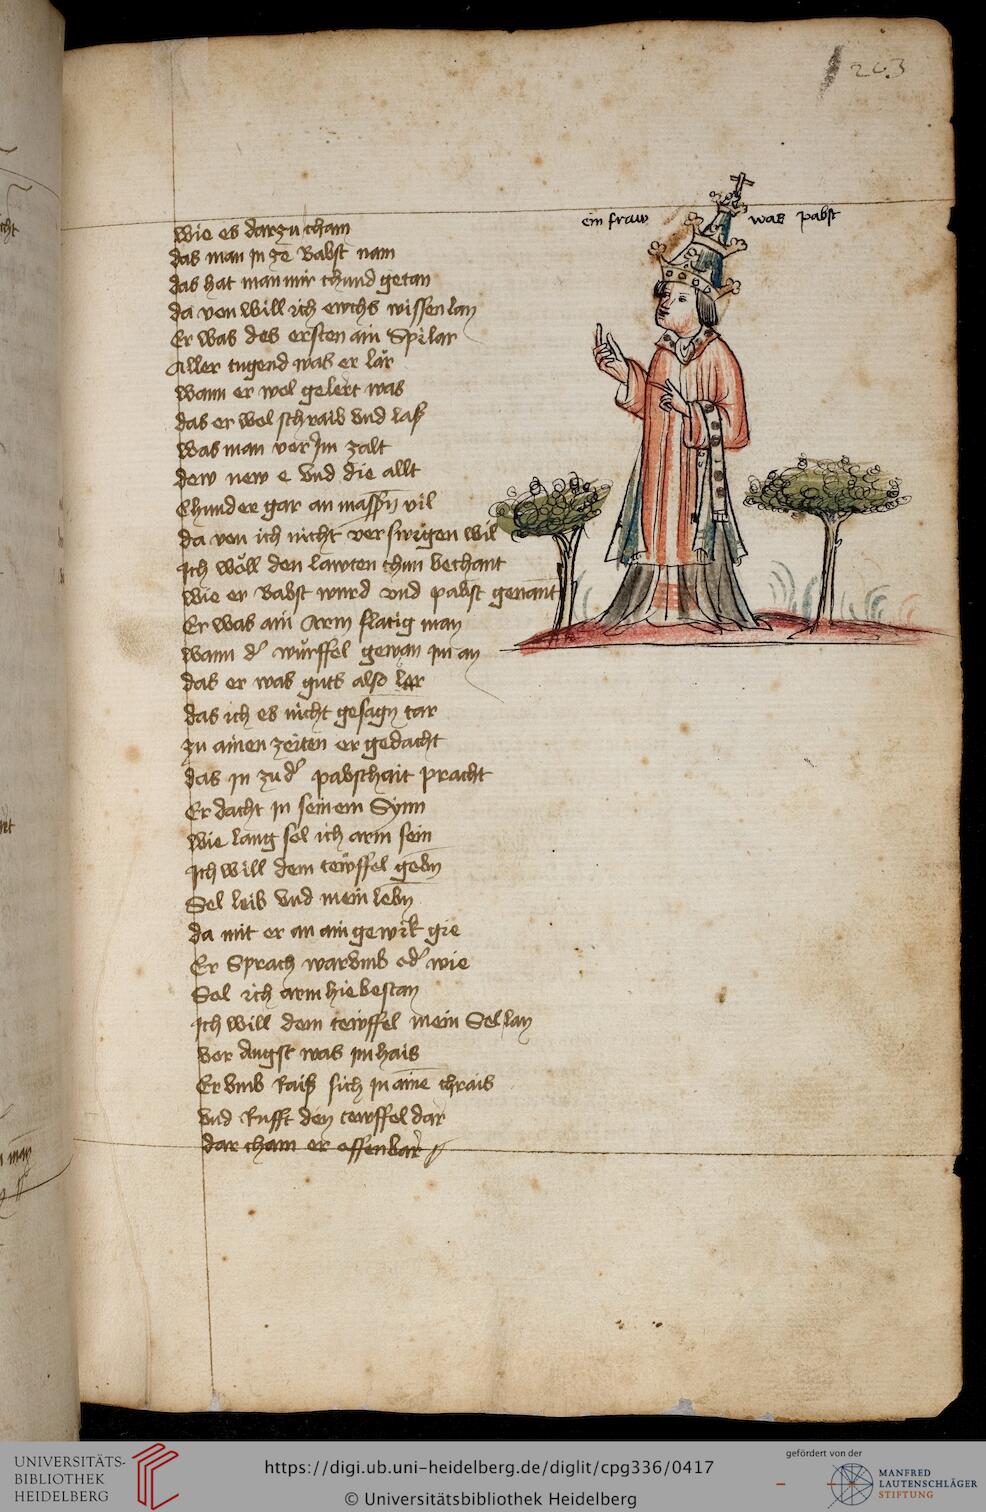 203
ein fraw was pabst
Wie es darzu cham
das man Jn ze Babst nam
das hat man mir chund getan
da von will ich ewchs wissen lan
Er was des ersten ain Spilar
Aller tugend was er lär
wann er wol gelert was
das er wol schraib vnd laß
was man vor Im zalt
dew new e vnd die allt
Chund er gar an massn vil
da von ich nicht versweigen wil
Ich wöll den lawten chun bechant
Wie er Babst wurd vnd pabst genant
Er was ain Arm flatig man
wann d' würffel gewan Jm an
das er was guts also lär
das ich es nicht gesagn tar
zu ainen zeiten er gedacht
das Jn zu d' pabschait pracht
Er dacht Jn seinem Synn
Wie lang sol ich arm sein
Ich will dem tewffel gebn
Sel leib vnd mein lebn
da mit er an ain gewik gie
Er Sprach warvmb od' wie
Sol ich arm hie bestan
Ich will dem tewffel mein Sel lan
vor Angst was Jm hais
Er vmb Raiß sich Jn aine chrais
vnd Rufft den tewffel dar
dar cham er offenbar
UNIVERSITÄTS-
BIBLIOTHEK
HEIDELBERG
https://digi.ub.uni-heidelberg.de/diglit/cpg336/0417
© Universitätsbibliothek Heidelberg
gefördert von der
MANFRED
LAUTENSCHLÄGER
STIFTUNG